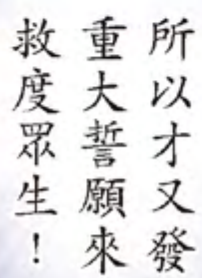 所以才又發
重大誓願來
救度眾生！